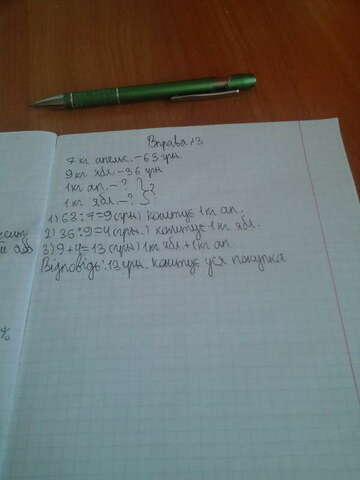 Вправа 3
7 кг апельс. - 63 грн
9 кг ябл. - 36 грн
1 кг ап. - ?
1 кг ябл. - ? } ?
1) 63:7=9 (грн) коштує 1 кг ап.
2) 36:9=4 (грн.) коштує 1 кг ябл.
3) 9+4=13 (грн) 1 кг ябл + 1 кг ап
Відповідь: 13 грн. коштує уся покупка
%